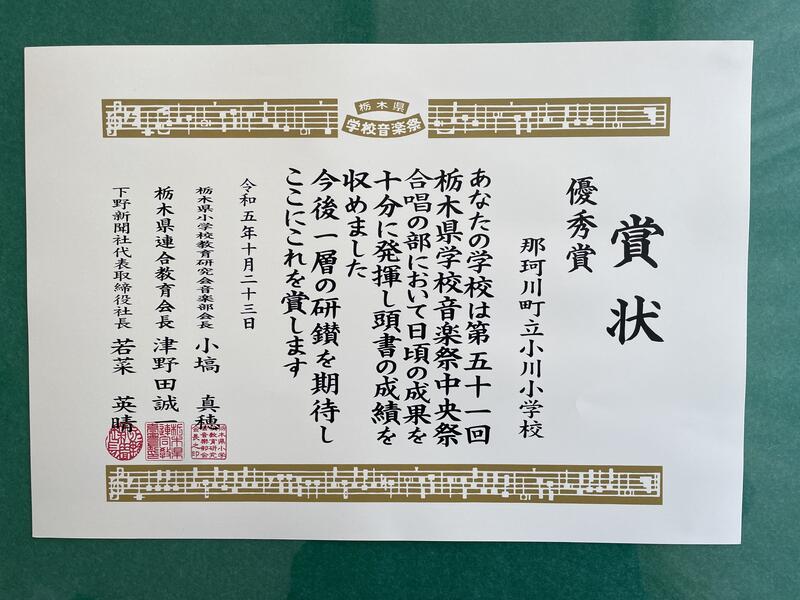 栃木県
学校音楽祭
賞状
優秀賞
那珂川町立小川小学校
あなたの学校は第五十一回
栃木県学校音楽祭中央祭
合唱の部において日頃の成果を
十分に発揮し頭書の成績を
収めました
今後一層の研鑚を期待し
ここにこれを賞します
令和五年十月二十三日
栃木県小学校教育研究会音楽部会長 小塙 真穂
栃木県連合教育会長 津野田誠一
下野新聞社代表取締役社長 若菜 英晴